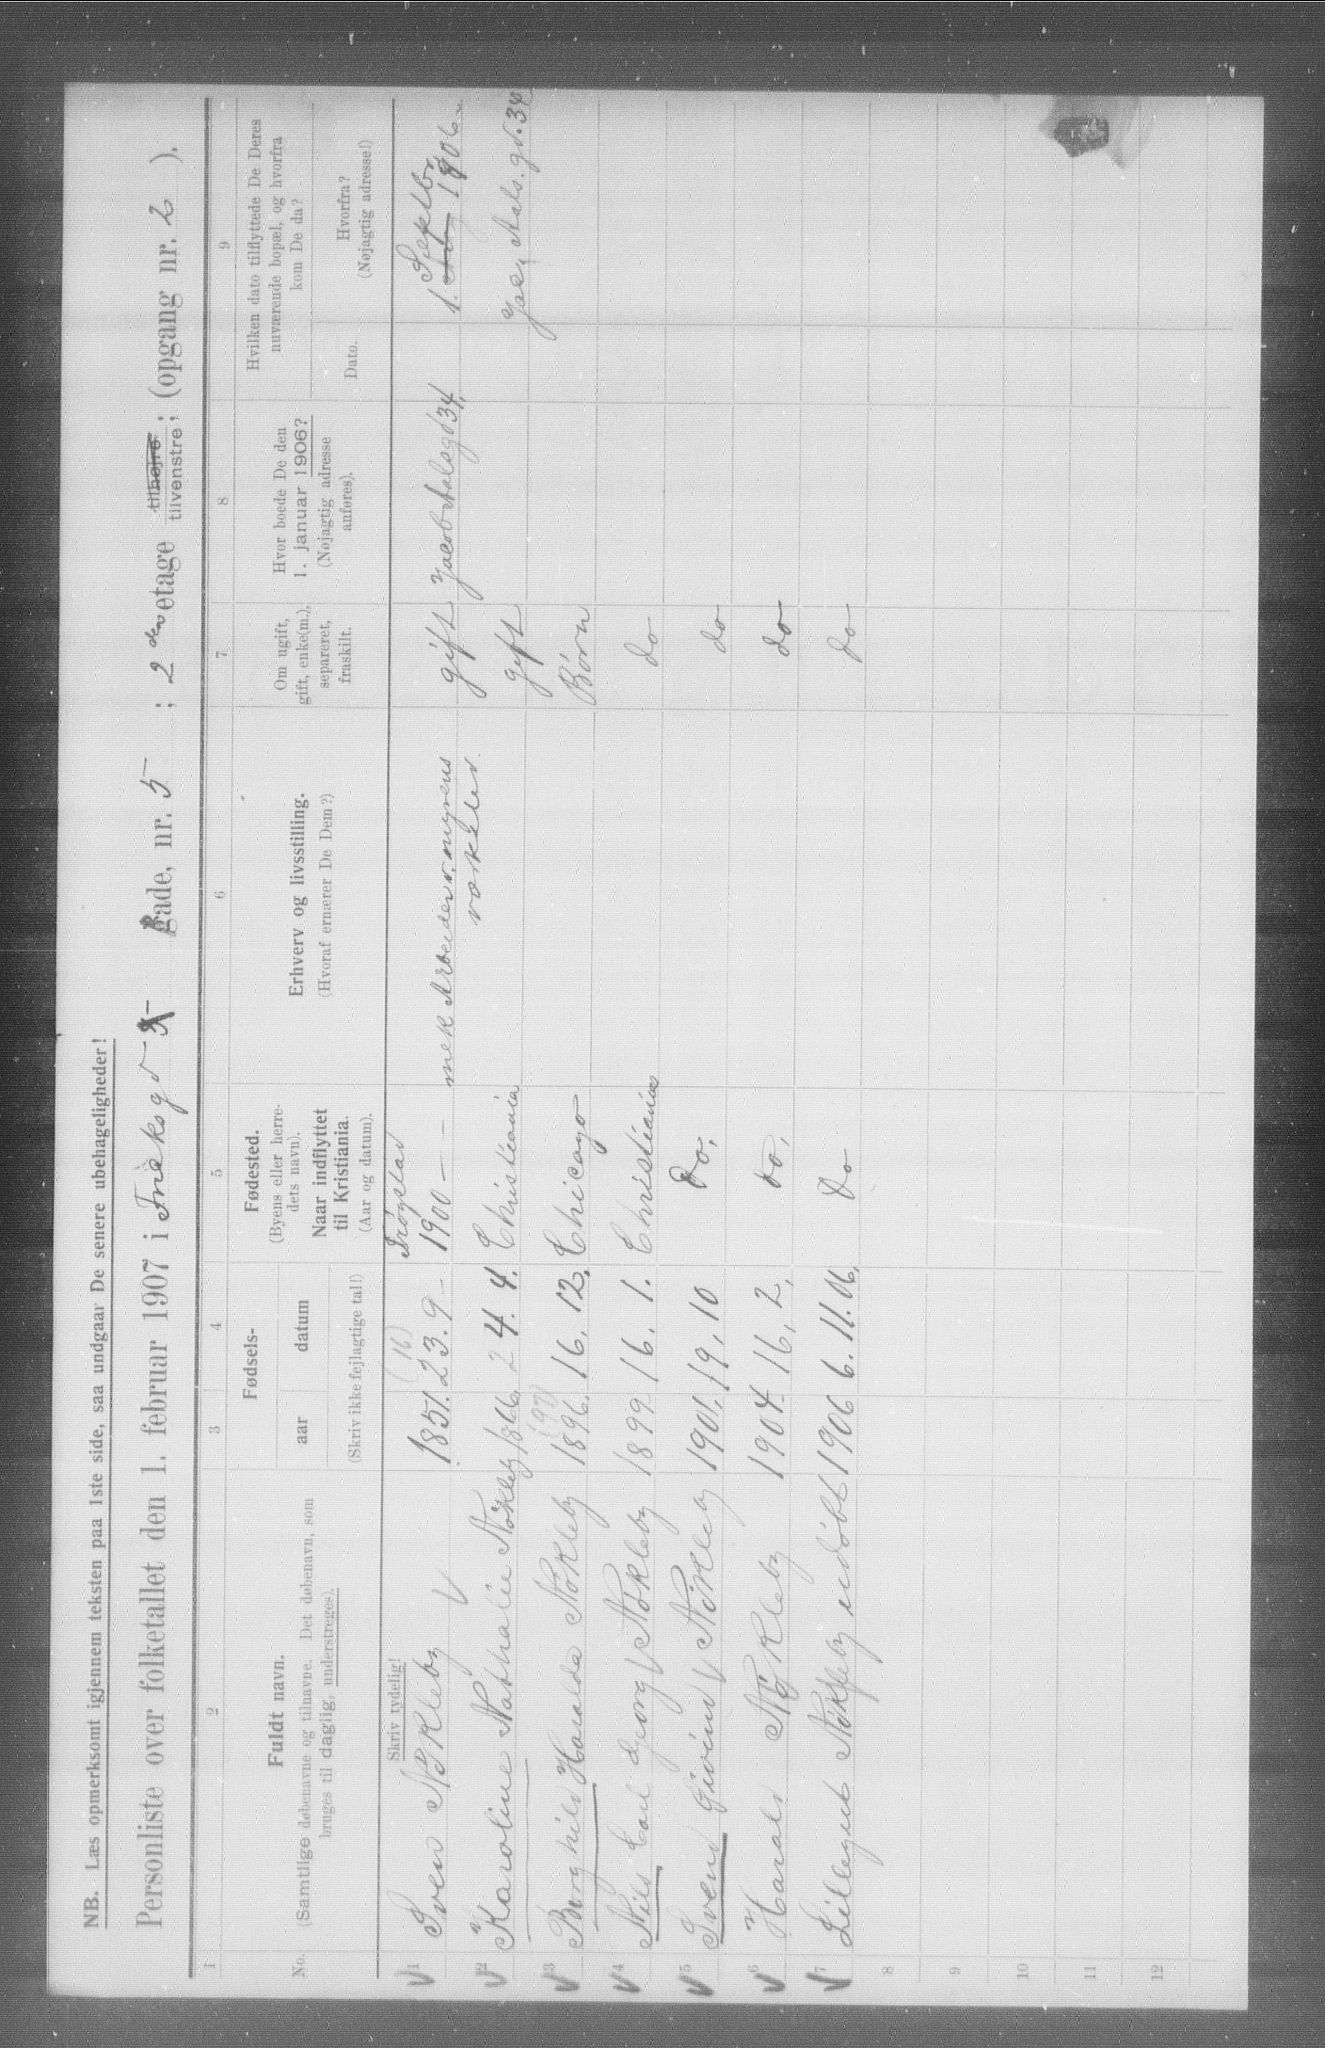 NB. Læs opmerksomt igjennem teksten paa 1ste side, saa undgaar De senere ubehageligheder!
Personliste over folketallet den 1. februar 1907 i gade, nr. 5 ; 2 den etage tilhøire tilvenstre; (opgang nr. 2 ).
1 2 3 4 5 6 7 8 9
No.
Fuldt navn.
(Samtlige døbenavne og tilnavne. Det døbenavn, som
bruges til daglig, understreges).
Fødsels-
aar datum
(Skriv ikke fejlagtige tal!)
Fødested.
(Byens eller herre-
dets navn).
Naar indflyttet
til Kristiania.
(Aar og datum).
Erhverv og livsstilling.
(Hvoraf ernærer De Dem?)
Om ugift,
gift, enke(m.),
separeret,
fraskilt.
Hvor boede De den
1. januar 1906?
(Nøjagtig adresse
anføres).
Hvilken dato tilflyttede De Deres
nuværende bopæl, og hvorfra
kom De da?
Dato.
Hvorfra?
(Nøjagtig adresse!)
Skriv tydelig!
1 Sven Nökleby 1851. 23. 9 (16) Trögstad 1900 mek Arbeider, myrens værksted gift Jacob Aalsgd 34. 1. Septbr 1906
2 Karoline Nathalie Nökleby 1866 24. 4. Christiania gift Jac. Aals. gd. 34
3 Borghild Haralda Nökleby 1896. (97) 16. 12. Chicago Börn
4 Nils Carl Georg Nökleby 1899 16. 1. Christiania do
5 Svend Eivind Nökleby 1901. 19. 10 do. do
6 Harald Nökleby 1904 16. 2. do. do
7 Lillegut Nökleby udöbt 1906 6. 11. 06. do do
8
9
10
11
12